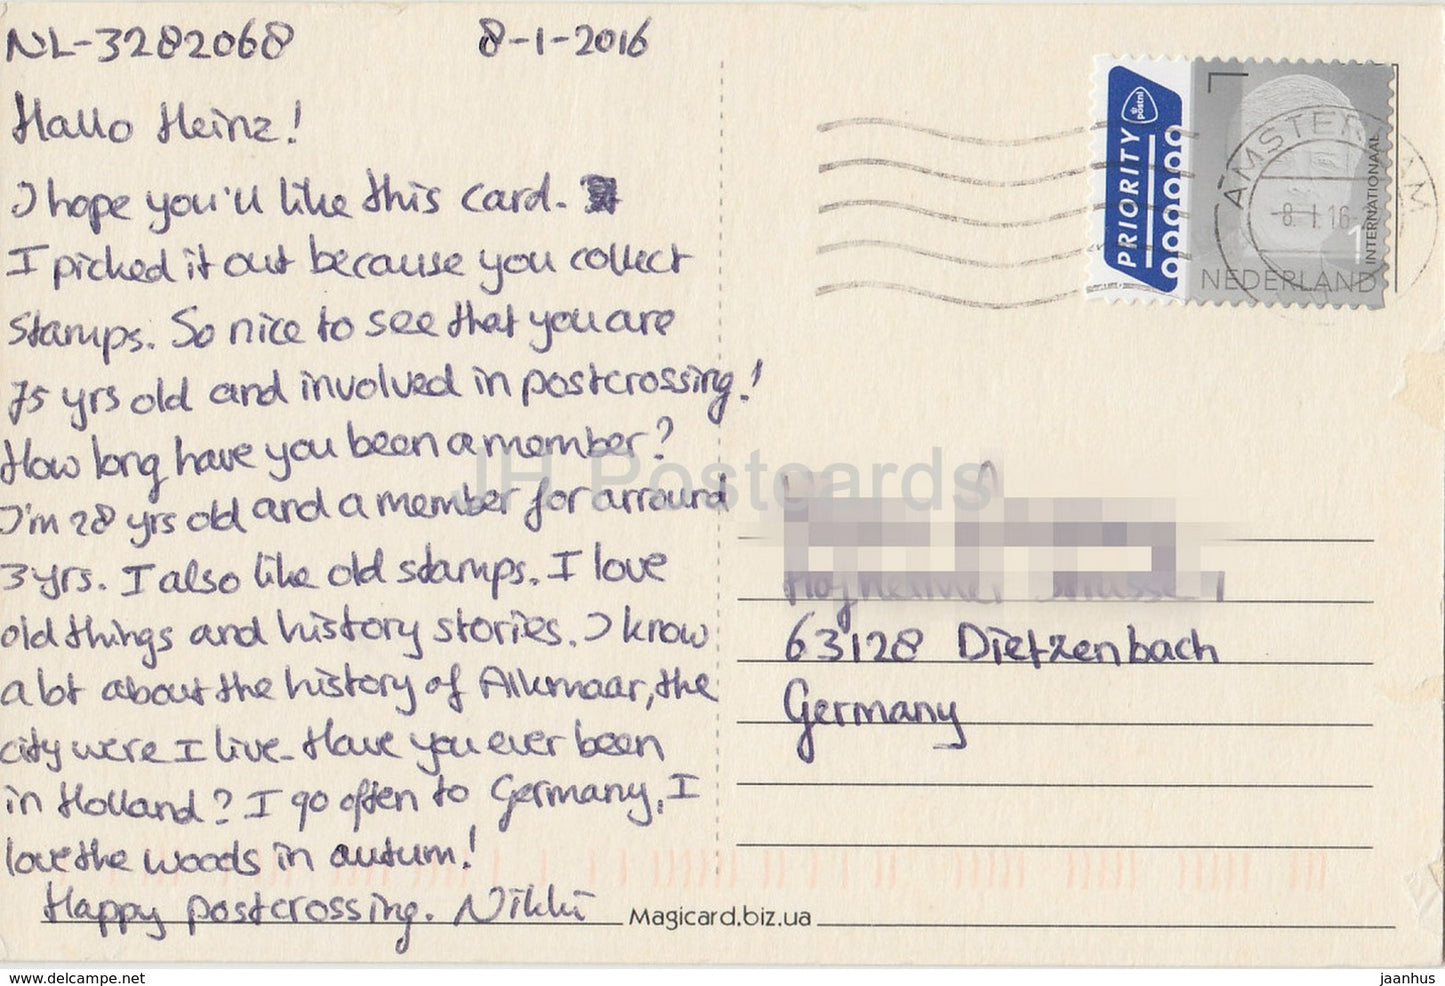 NL-3282068 8-1-2016
Hallo Heinz!
I hope you'll like this card.
I picked it out because you collect
stamps. So nice to see that you are
75 yrs old and involved in postcrossing!
How long have you been a member?
I'm 28 yrs old and a member for arround
3 yrs. I also like old stamps. I love
old things and history stories. I know
a lot about the history of Alkmaar, the
city were I live. Have you ever been
in Holland? I go often to Germany, I
love the woods in autum!
Happy postcrossing. Nikki
Magicard.biz.ua
PRIORITY
postnl
1
INTERNATIONAAL
NEDERLAND
AMSTERDAM
8.1.16
JH Postcards
63128 Dietzenbach
Germany
www.delcampe.net
jaanhus